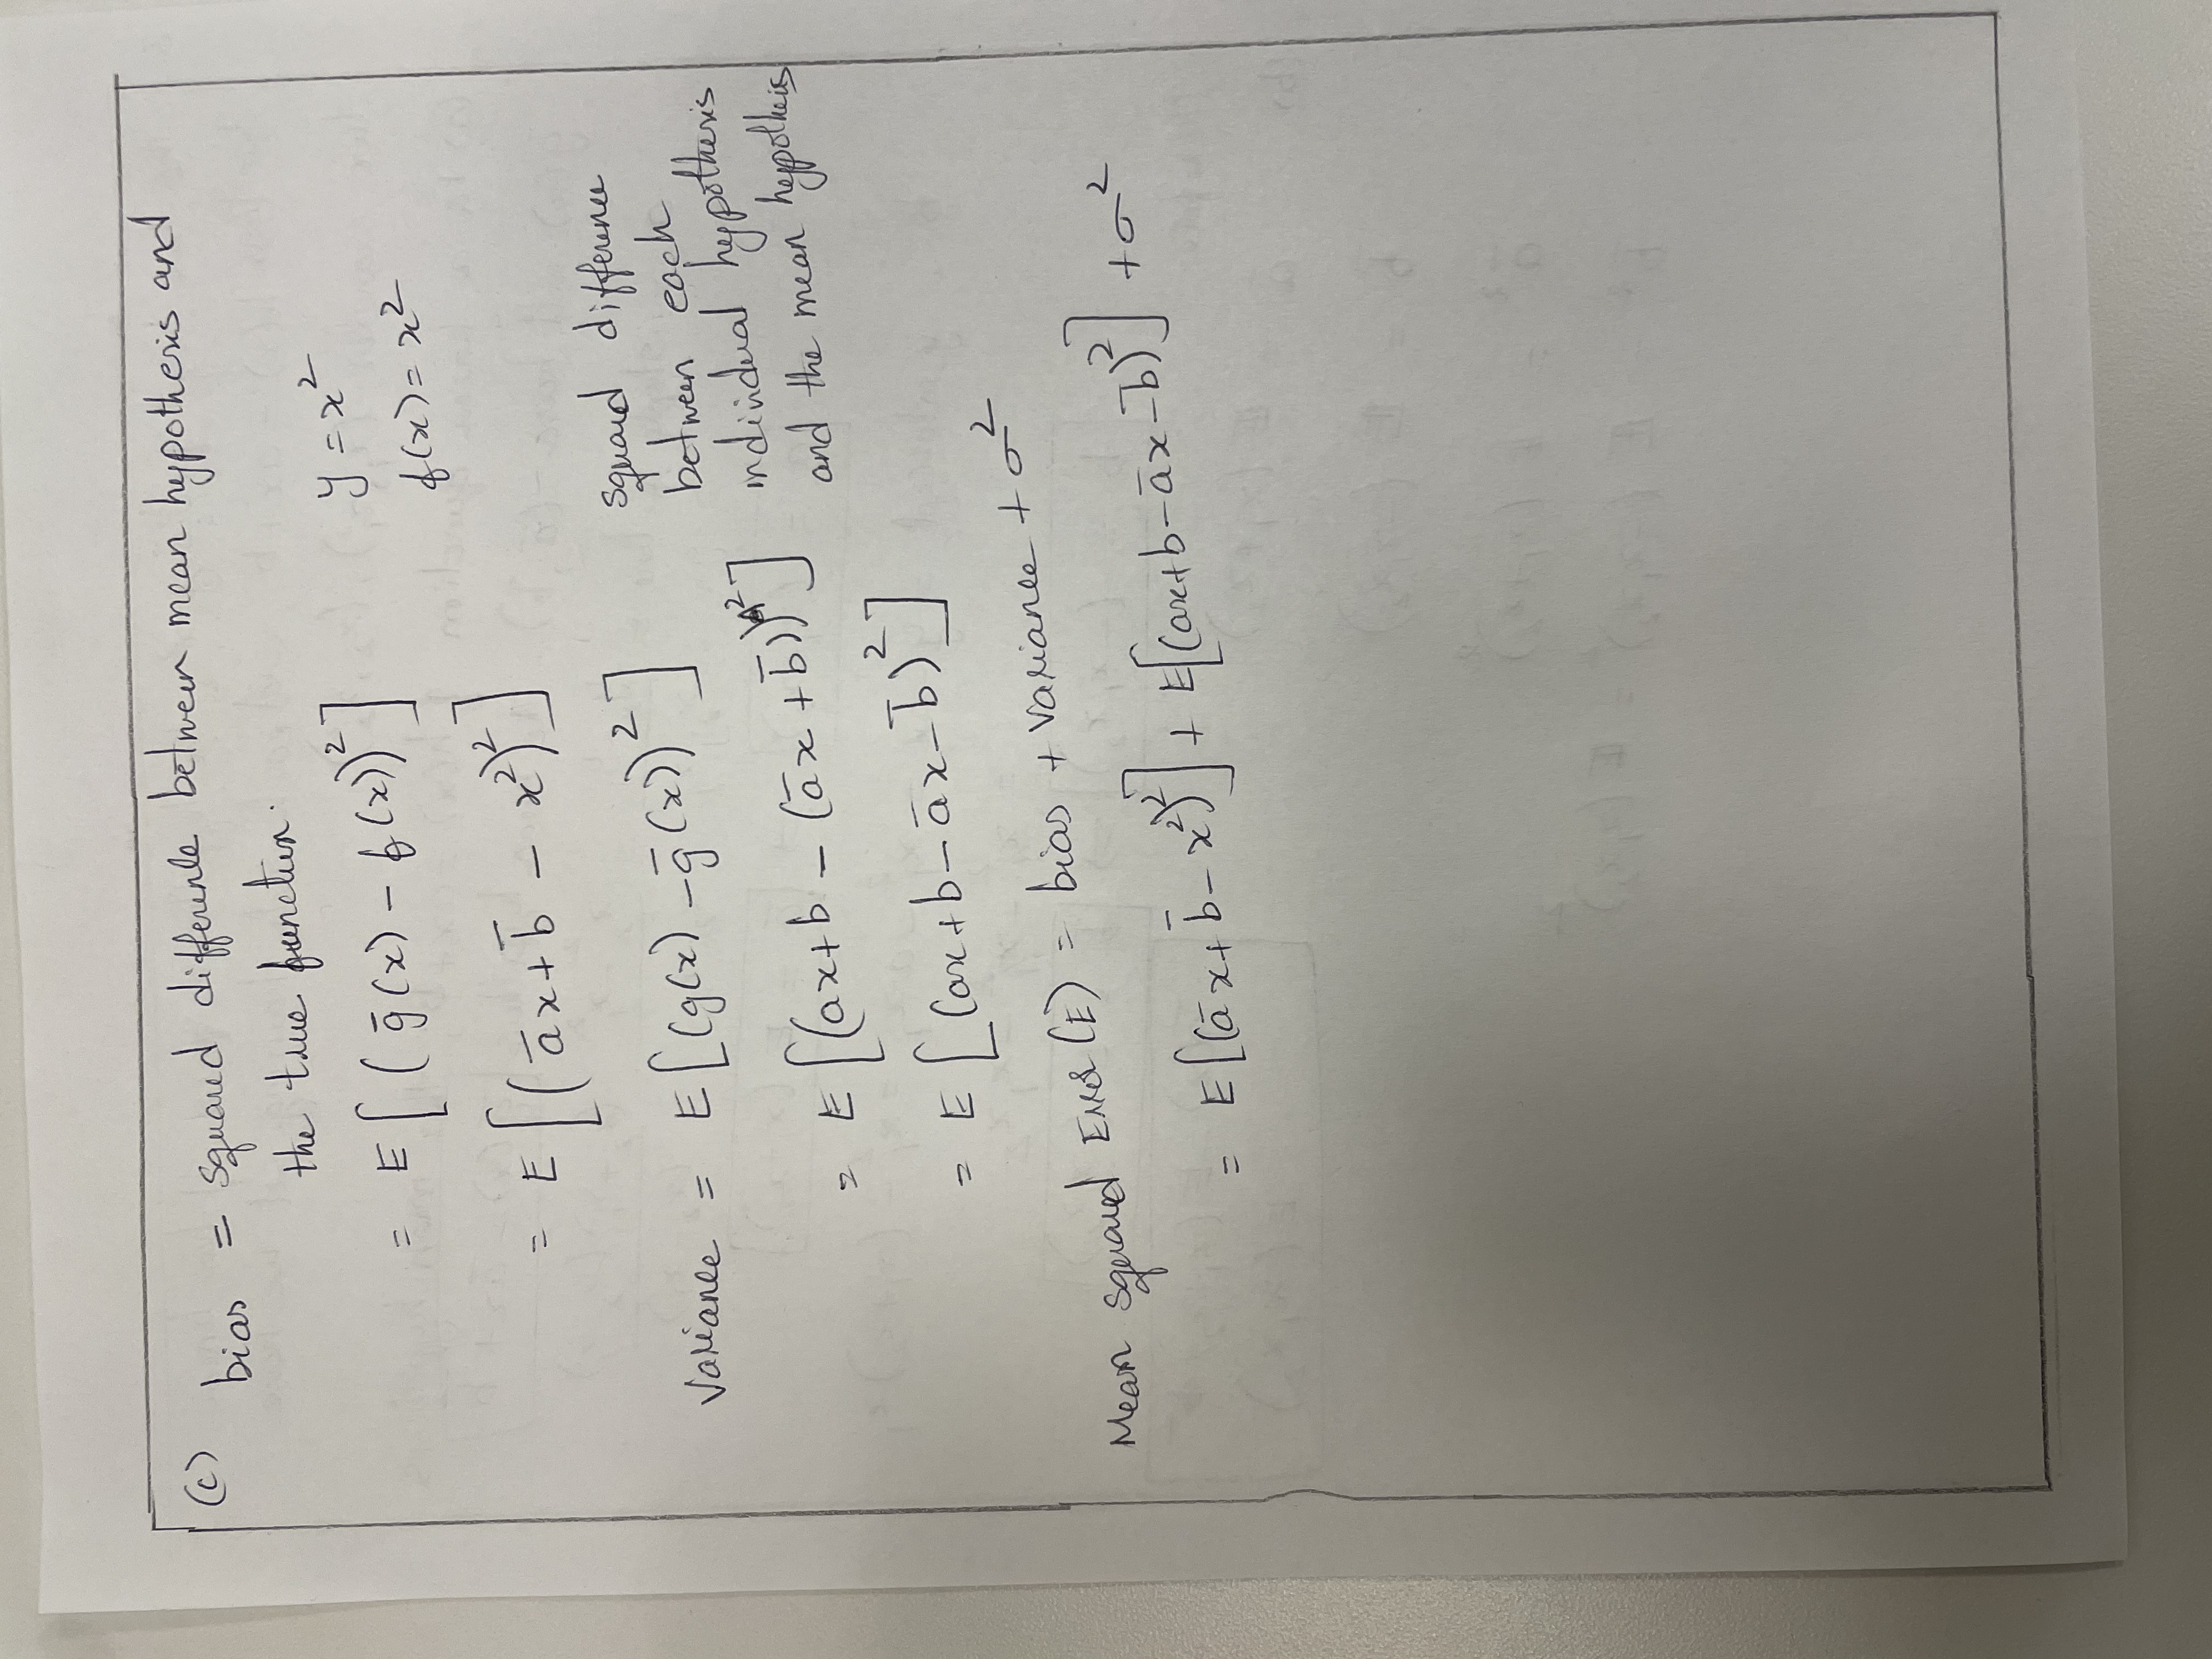 (c) bias = squared difference between mean hypothesis and
the true function.
= E[(ḡ(x) - f(x))²]
y = x²
f(x) = x²
= E[(āx + b̄ - x²)²]
Variance = E[(g(x) - ḡ(x))²]
squared difference
between each
individual hypothesis
and the mean hypothesis
= E[(ax+b - (āx + b̄))²]
= E[(ax+b - āx - b̄)²]
Mean squared Error (E) = bias + Variance + σ²
= E[(āx + b̄ - x²)²] + E[(ax+b - āx - b̄)²] + σ²